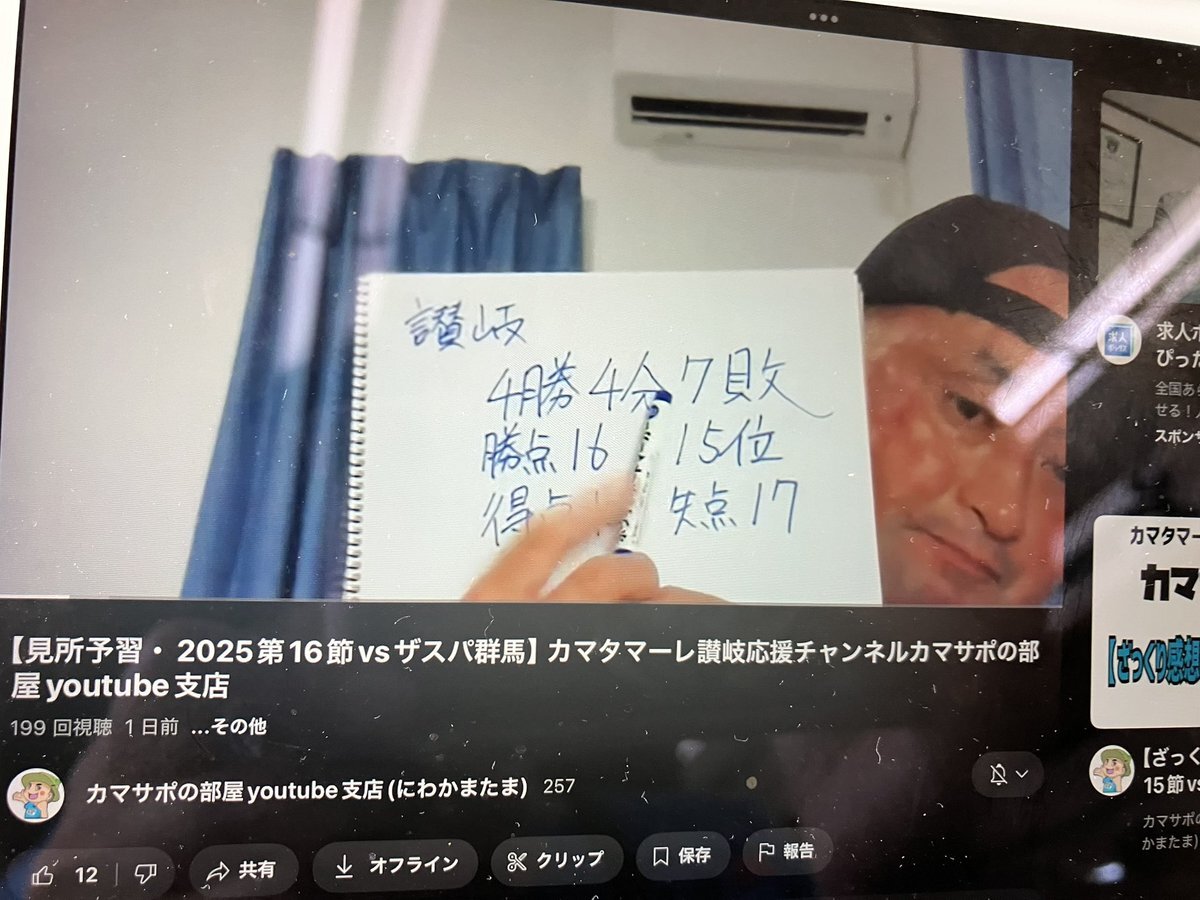 讃岐
4勝4分7敗
勝点16 15位
得点1 失点17
【見所予習・ 2025第16節vsザスパ群馬】カマタマーレ讃岐応援チャンネルカマサポの部
屋youtube支店
199 回視聴 1日前 ...その他
カマサポの部屋youtube支店(にわかまたま) 257
12 共有 オフライン クリップ 保存 報告
求人
ボックス
求人ボ
ぴった
全国あら
せる!
スポンサ
カマタマー
カマ
【ざっくり感想
【ざっく
15節vs
カマサポの
かまたま)